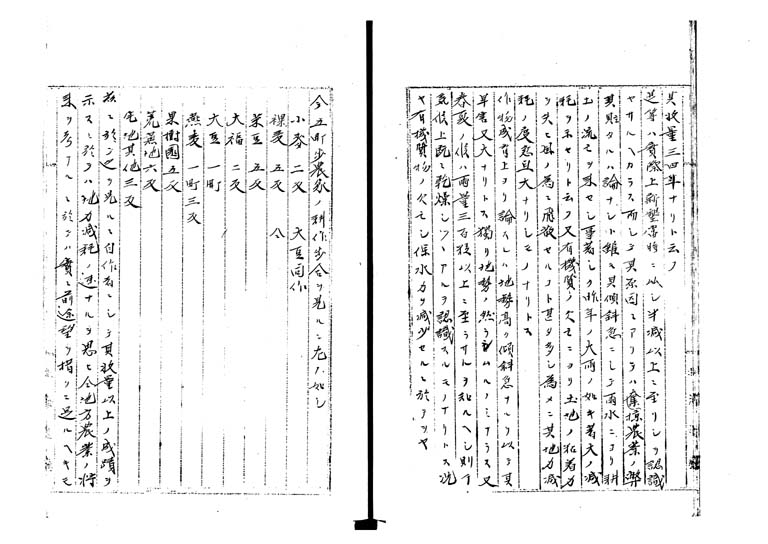 其收量三四年ナリト云フ
是等ハ實際上新墾當時ニ比シ半減以上ニ至リシヲ認識
セサルヘカラス而シテ其原因モアリテハ掠奪農業ノ弊
其貼タルハ論ナシト雖モ其傾斜急ニシテ雨水ニヨリ耕
土ノ流亡ヲ來セシ事著シク昨年ノ大雨ノ如キ著大ノ減
耗ヲ來セリト云フ又有機質ノ欠亡ニヨリ土地ノ粘着力
ヲ失ヒ風ノ為ニ飛散セルコト甚タ多シ為メニ其地力減
耗ノ度恐且大ナリシモノナリトス
作物成育上ヨリ論スレハ地勢高ク傾斜急ナルヲ以テ其
旱害又大ナリトス獨リ地勢ノ然ラシムルノミナラス又
春夏ノ候ハ雨量三百粍以上ニ至ラサルヲ知ルヘシ則チ
氣候上既ニ乾燥シツヽアルヲ認識スルモノナリトス況
ヤ有機質物ノ欠亡シ保水力ヲ減少セルニ於テヲヤ
今五町歩農家ノ耕作歩合ヲ見ルニ左ノ如シ
小麥 二反 大豆間作
裸麥 五反 〃
菜豆 五反
大福 二反
大豆 一町
燕麥 一町三反
果樹園 五反
荒蕪地 六反
宅地其他 三反
故ニ於テ之ヲ見ルニ自作者ニシテ其收量以上ノ成蹟ヲ
示スニ於テハ地力減耗ノ速ナルヲ思ヒ今地方農業ノ將
來ヲ考フルニ於テハ實ニ前途望ヲ損フニ至ルヘキモ